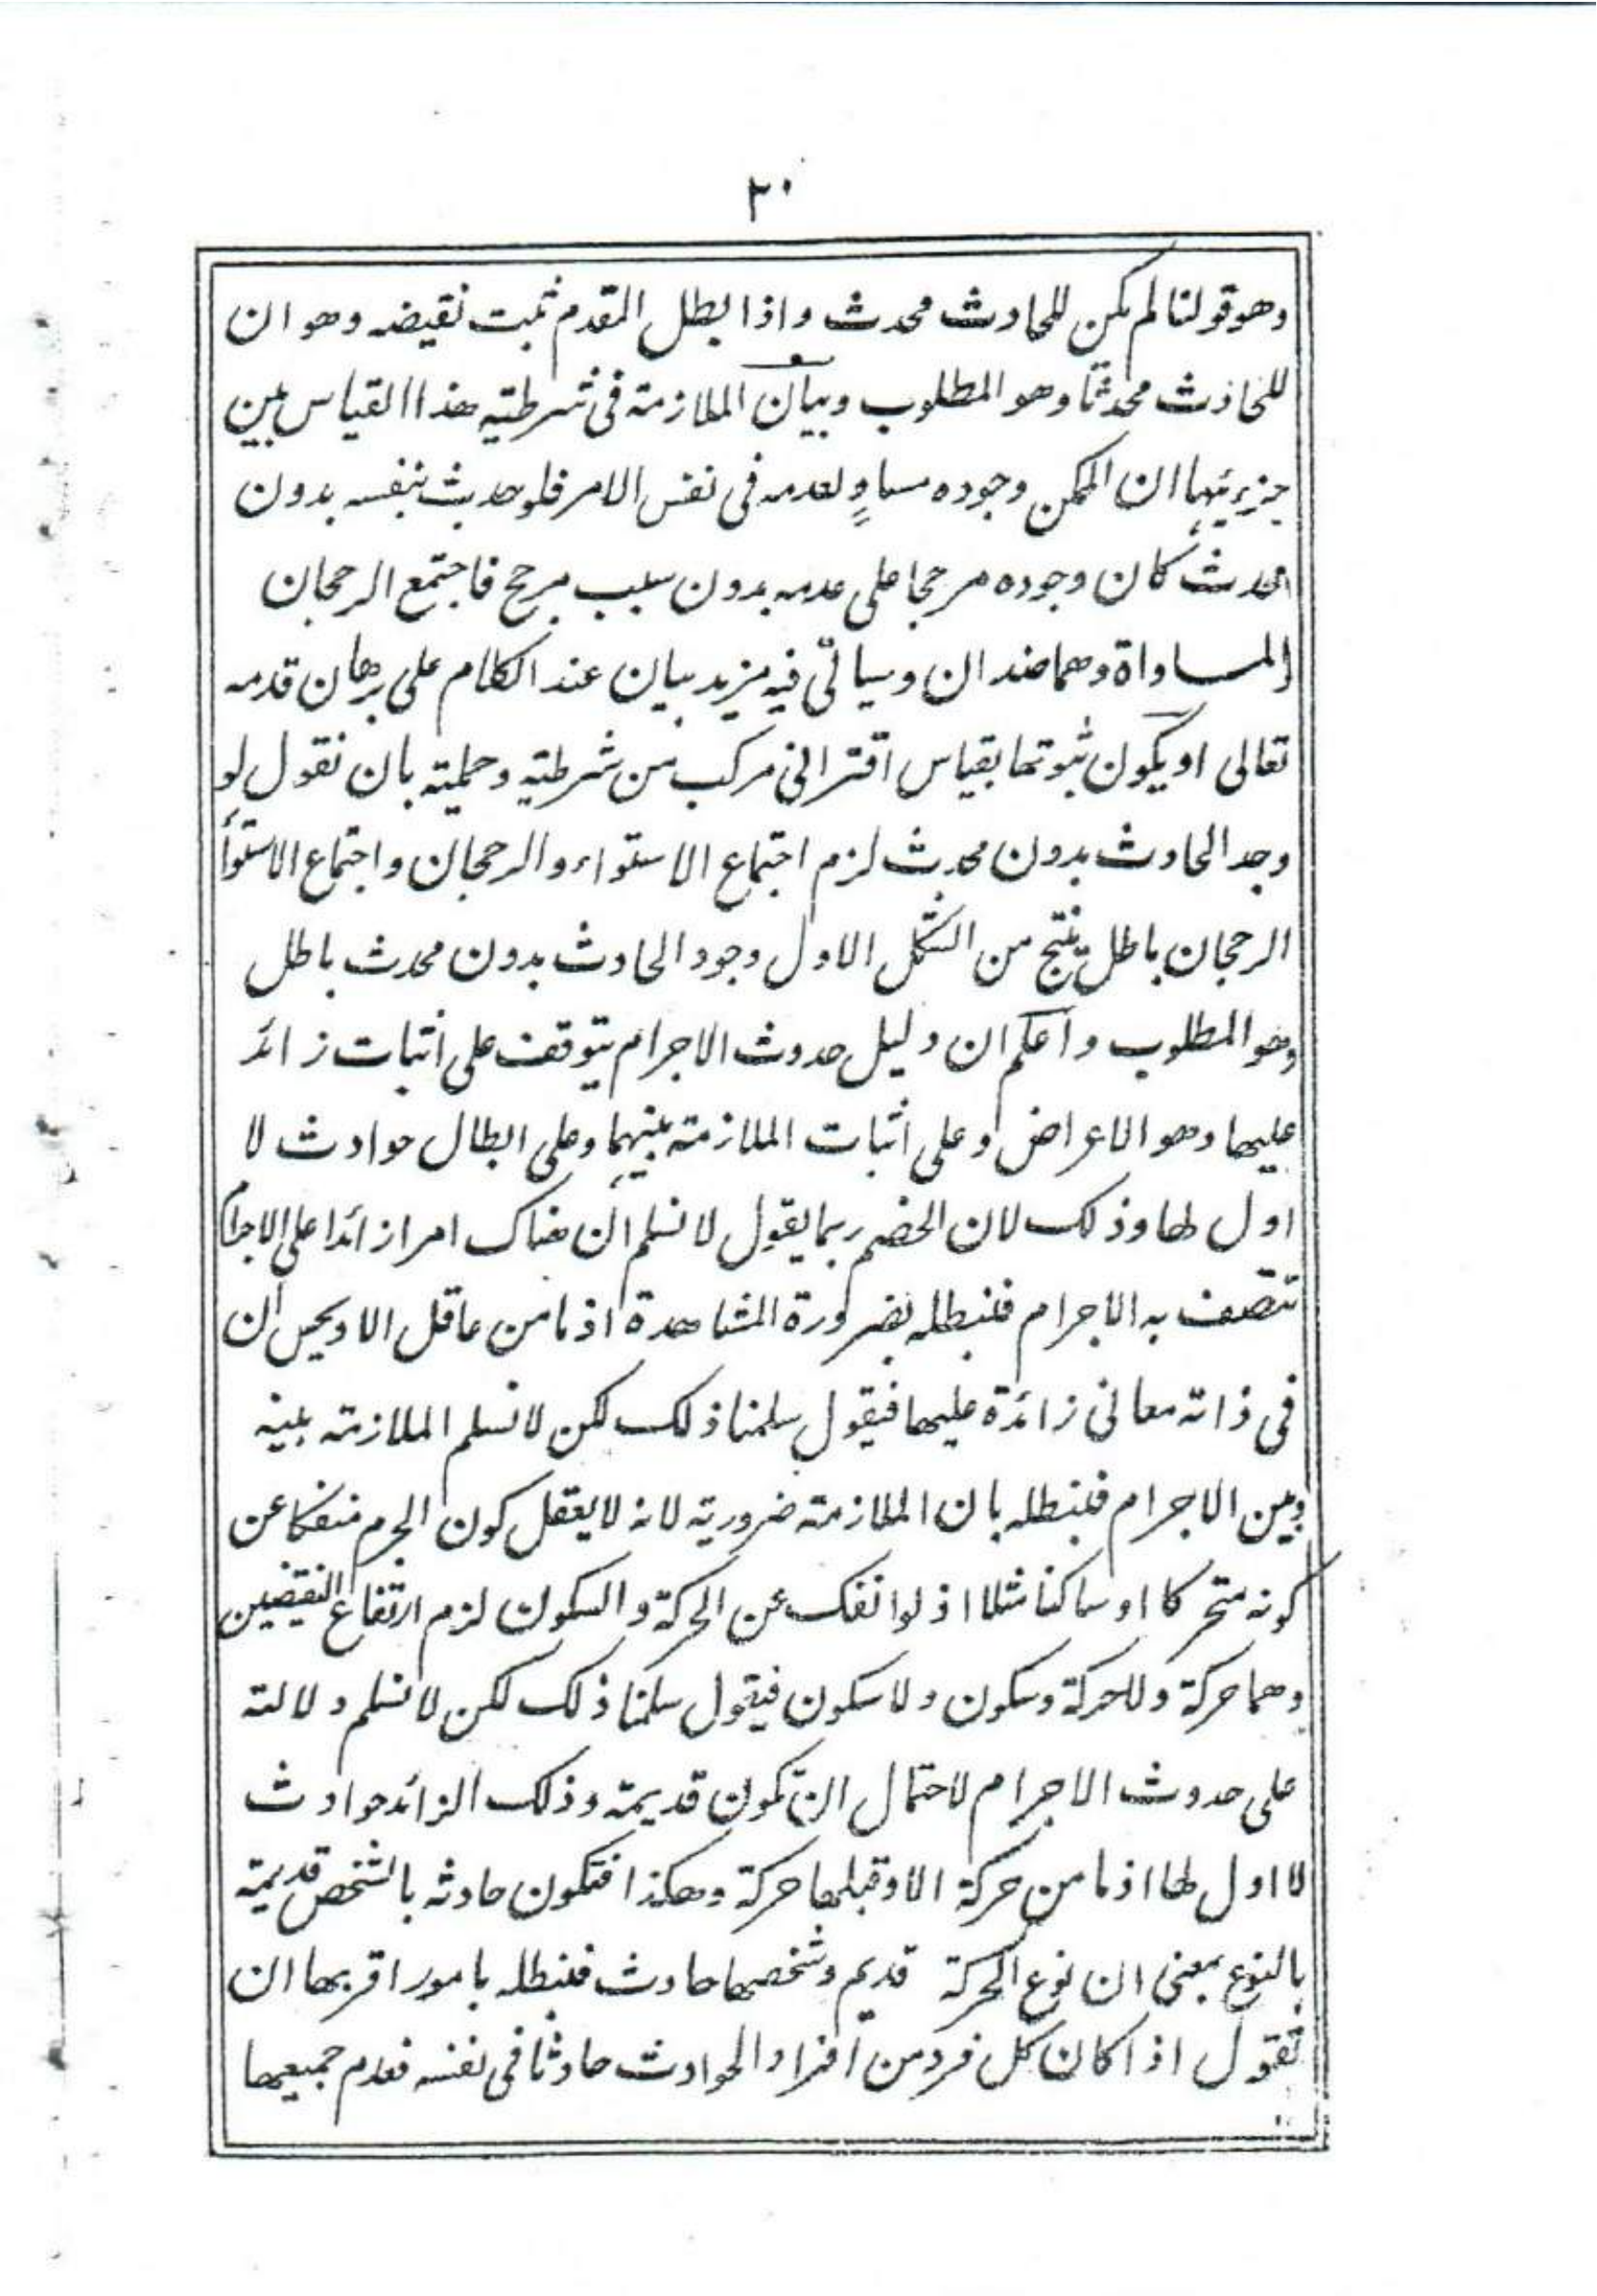 ٣٠
وهو قولنا لم يكن للحادث محدث واذا بطل المقدم ثبت نقيضه وهو ان
للحادث محدثا وهو المطلوب وبيان الملازمة في شرطية هذا القياس بين
جزءيها ان الممكن وجوده مساوٍ لعدمه في نفس الامر فلو حدث بنفسه بدون
محدث كان وجوده مرجحا على عدمه بدون سبب مرجح فاجتمع الرجحان
المساواة وهما ضدان وسياتي فيه مزيد بيان عند الكلام على برهان قدمه
تعالى او يكون ثبوتها بقياس اقتراني مركب من شرطية وحملية بان نقول لو
وجد الحادث بدون محدث لزم اجتماع الاستواء والرجحان واجتماع الاستواء
الرجحان باطل ينتج من الشكل الاول وجود الحادث بدون محدث باطل
وهو المطلوب واعلم ان دليل حدوث الاجرام يتوقف على اثبات زائد
عليها وهو الاعراض وعلى اثبات الملازمة بينهما وعلى ابطال حوادث لا
اول لها وذلك لان الخصم ربما يقول لا نسلم ان هناك امرا زائدا على الاجرام
تتصف به الاجرام فنبطله بضرورة المشاهدة اذ ما من عاقل الا ويحس ان
في ذاته معاني زائدة عليها فيقول سلمنا ذلك لكن لا نسلم الملازمة بينه
وبين الاجرام فنبطله بان الملازمة ضرورية لانه لا يعقل كون الجرم منفكا عن
كونه متحركا او ساكنا مثلا اذ لو انفك عن الحركة والسكون لزم ارتفاع النقيضين
وهما حركة ولا حركة وسكون ولا سكون فيقول سلمنا ذلك لكن لا نسلم دلالته
على حدوث الاجرام لاحتمال ان تكون قديمة وذلك الزائد حوادث
لا اول لها اذ ما من حركة الا وقبلها حركة وهكذا فتكون حادثه بالشخص قديمة
بالنوع بمعنى ان نوع الحركة قديم وشخصها حادث فنبطله بامور اقربها ان
تقول اذا كان كل فرد من افراد الحوادث حادثا في نفسه فعدم جميعها